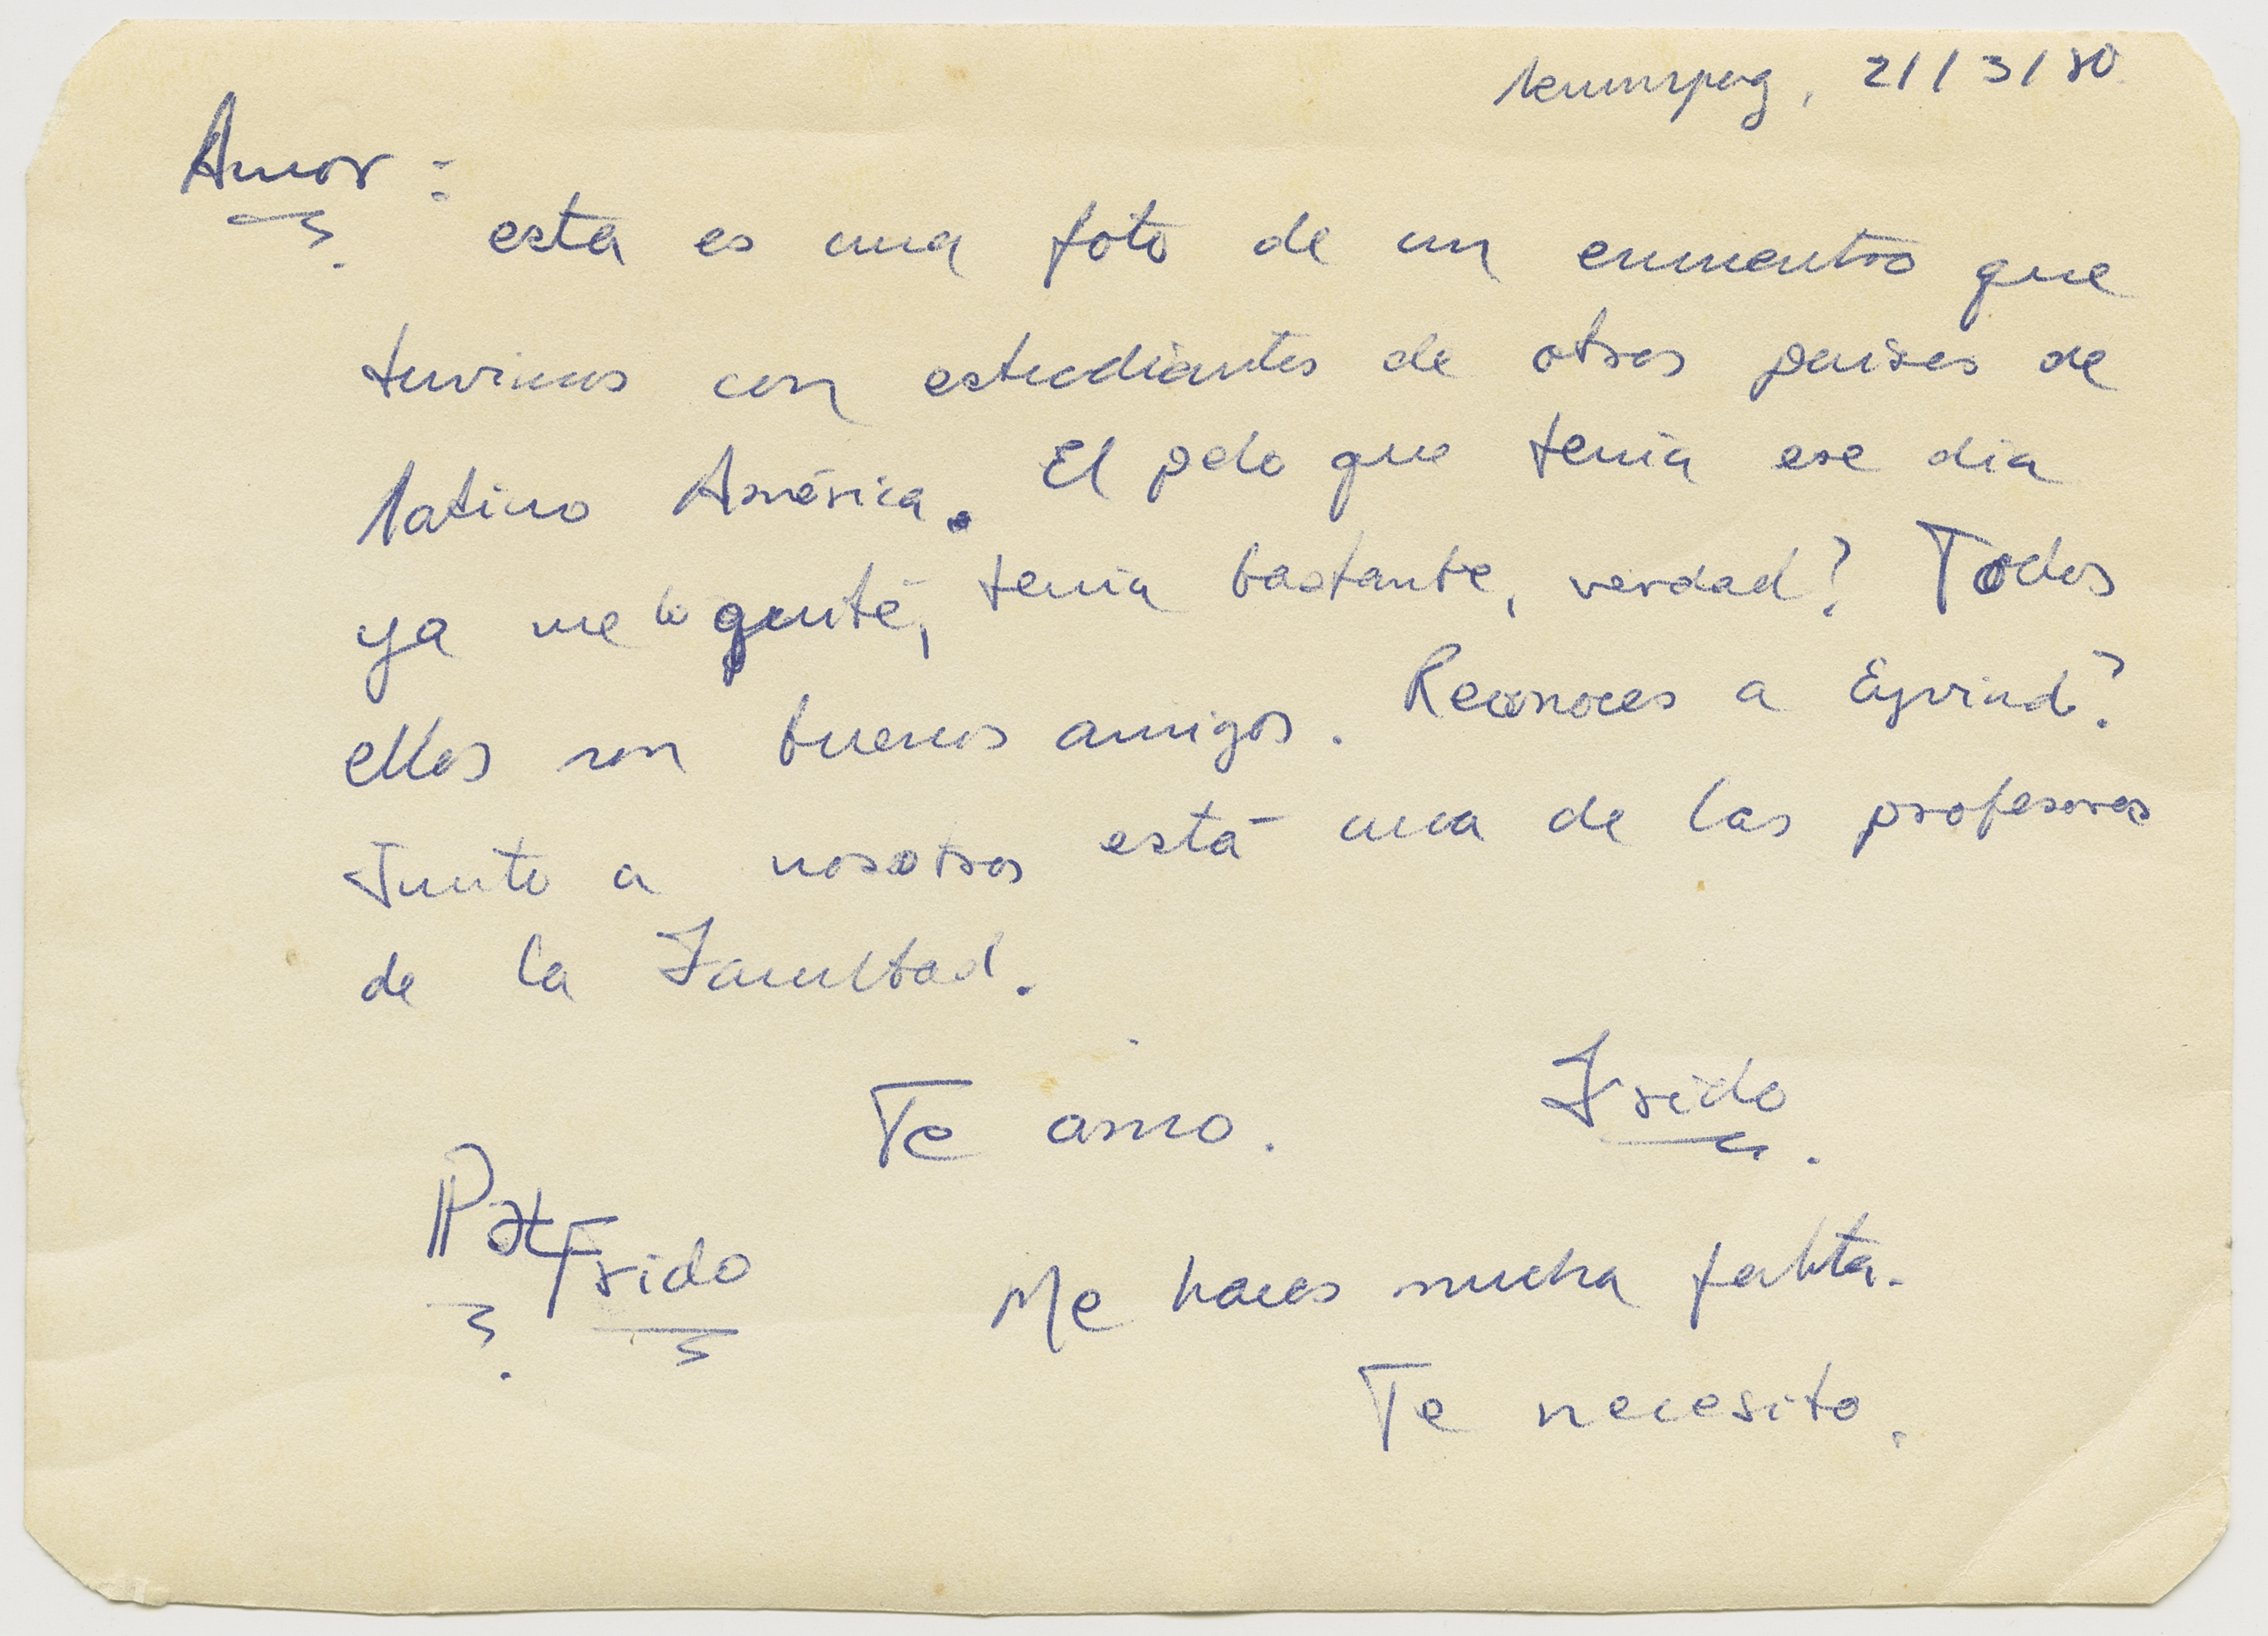 21/3/80
Amor:
esta es una foto de un encuentro que
tuvimos con estudiantes de otros países de
latino América. El pelo que tenía ese día
ya me lo quité, tenía bastante, verdad? Todos
ellos son buenos amigos. Reconoces a Eyvind?
Junto a nosotros está una de las profesoras
de la Facultad.
Te amo. Frido
Pat Frido
Me haces mucha falta.
Te necesito.